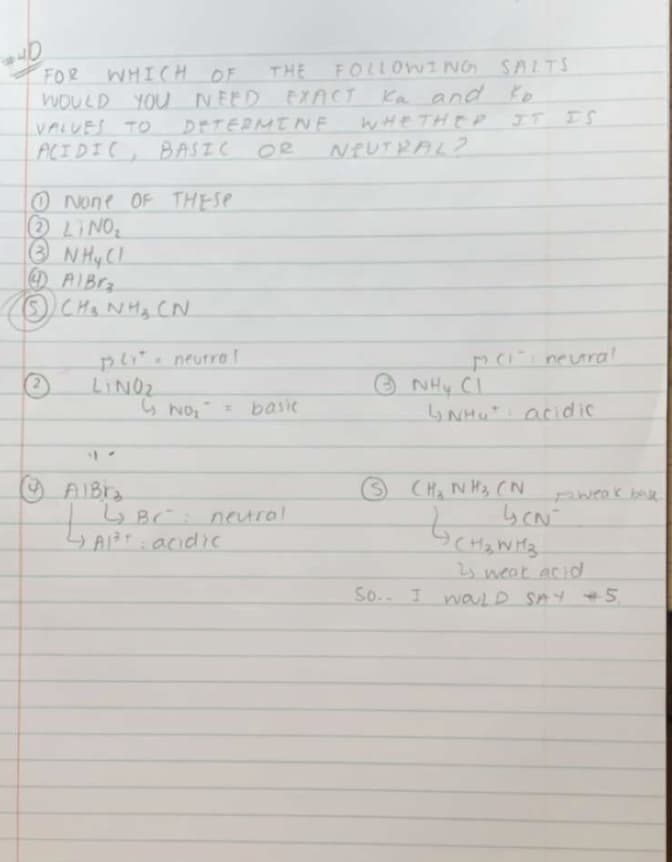 #40
FOR WHICH OF THE FOLLOWING SALTS
WOULD YOU NEED EXACT Ka and Kb
VALUES TO DETERMINE WHETHER IT IS
ACIDIC, BASIC OR NEUTRAL?
① None OF THESE
② LiNO₂
③ NH₄Cl
④ AlBr₃
⑤ CH₃NH₃CN
↱ Li⁺ = neutral
② LiNO₂
↳ NO₂⁻ = basic
↱ Cl⁻: neutral
③ NH₄Cl
↳ NH₄⁺: acidic
④ AlBr₃
↳ Br⁻: neutral
↳ Al³⁺: acidic
⑤ CH₃NH₃CN ↱ weak base
↳ CN⁻
↳ CH₃NH₃
↳ weak acid
So.. I WOULD SAY #5.